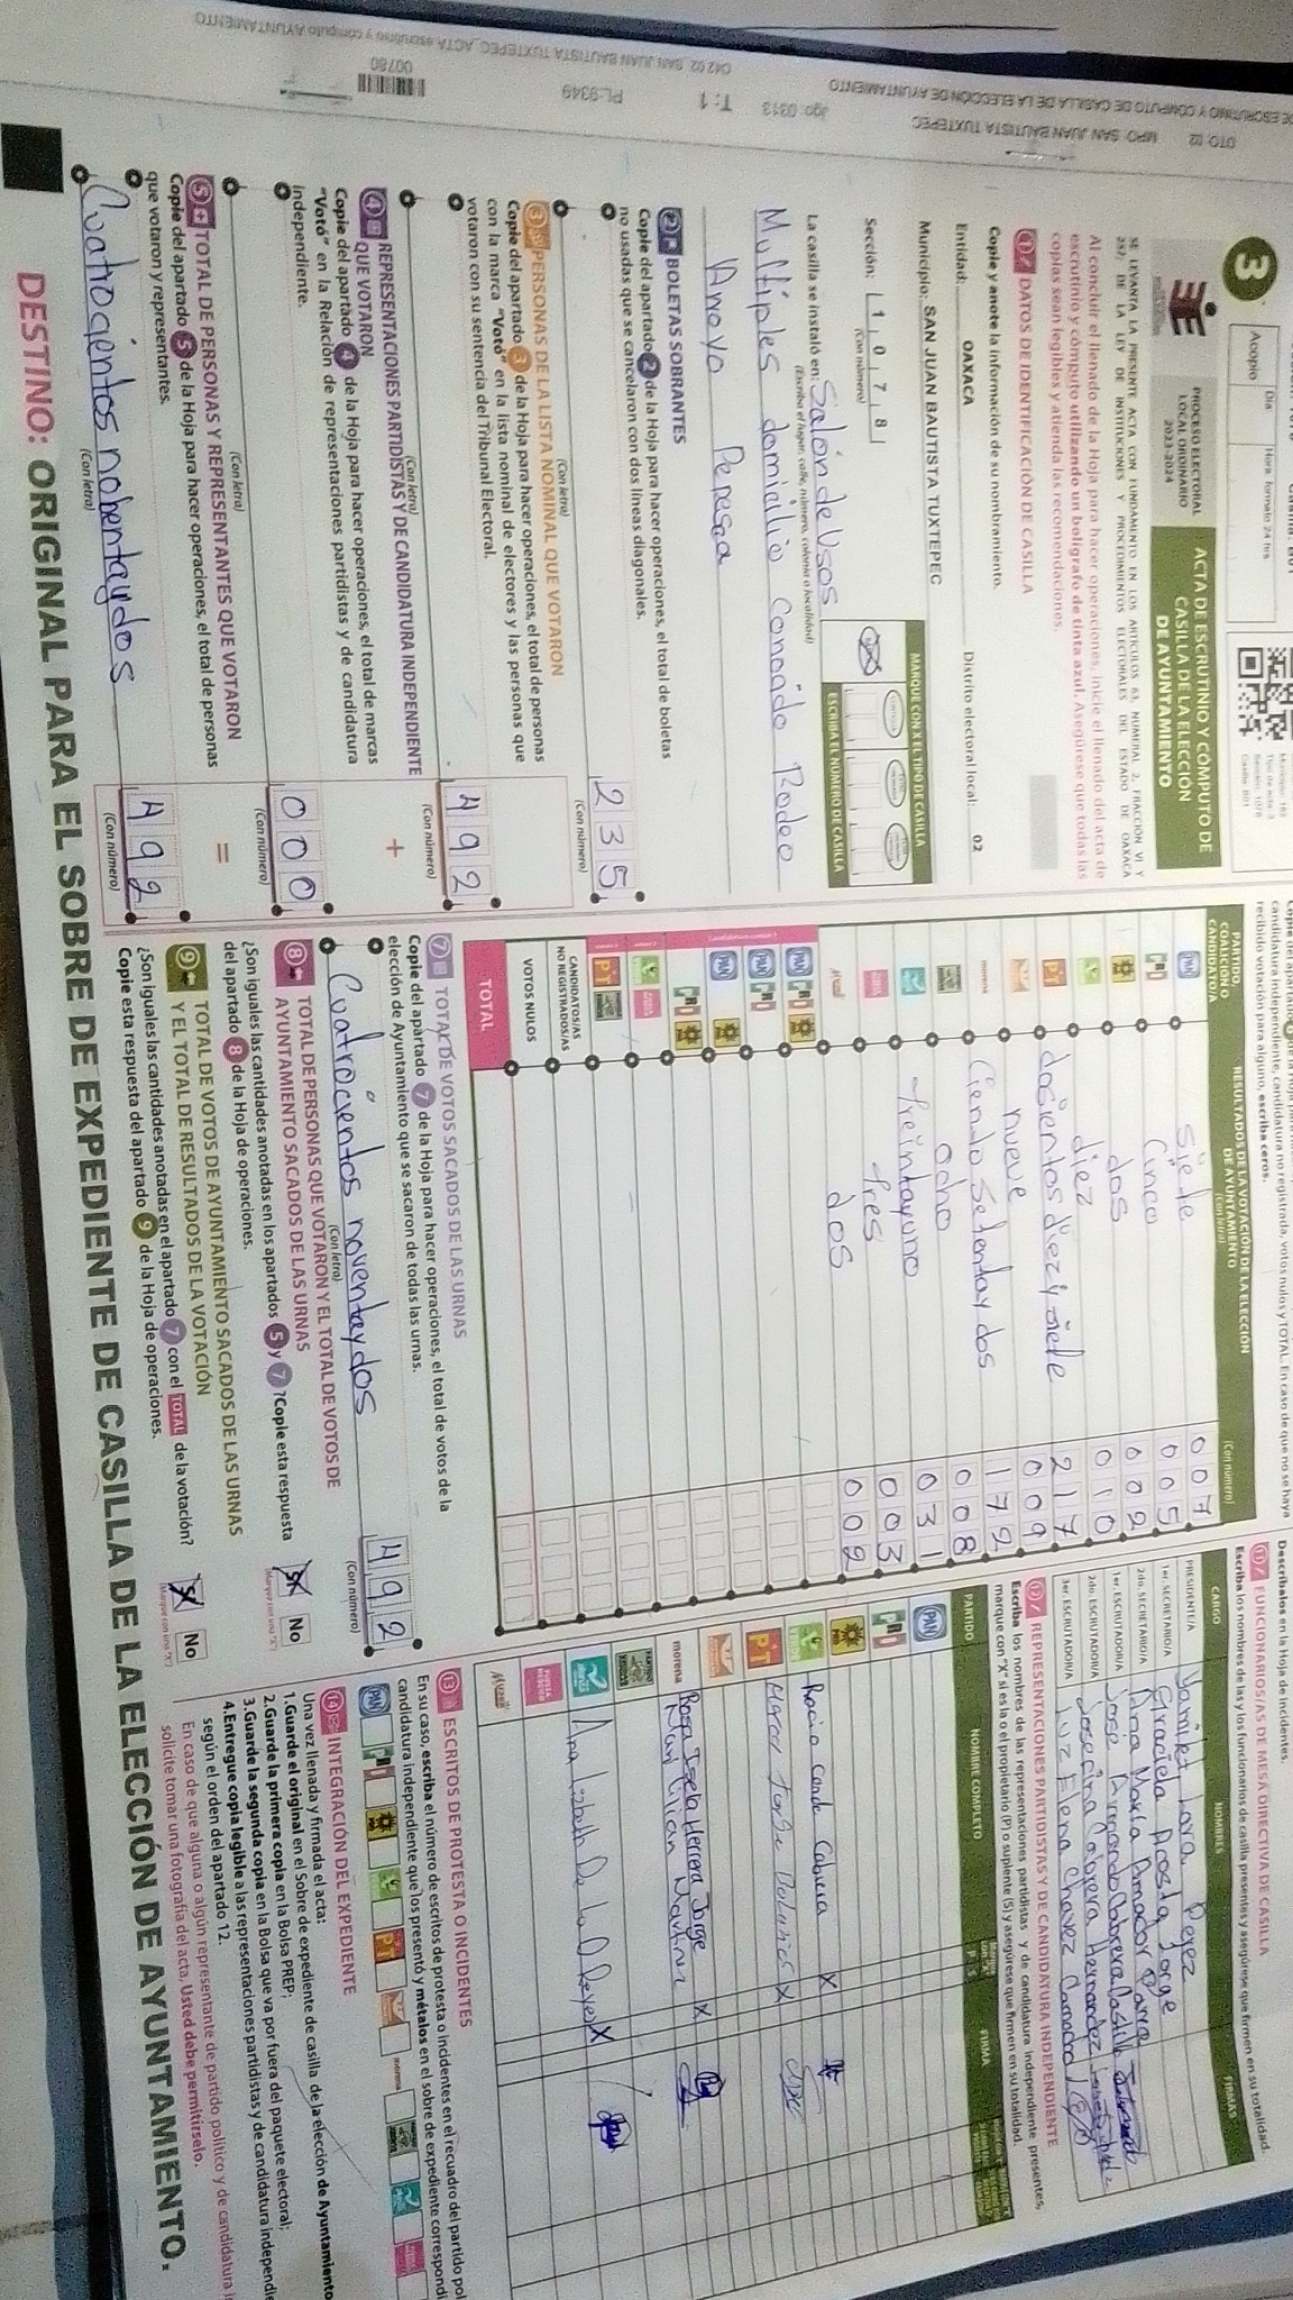 3
Acopio
Día
Hora formato 24 hrs
PROCESO ELECTORAL
LOCAL ORDINARIO
2023-2024
ACTA DE ESCRUTINIO Y CÓMPUTO DE
CASILLA DE LA ELECCIÓN
DE AYUNTAMIENTO
SE LEVANTA LA PRESENTE ACTA CON FUNDAMENTO EN LOS ARTÍCULOS 63, NUMERAL 2, FRACCIÓN VI Y
257; DE LA LEY DE INSTITUCIONES Y PROCEDIMIENTOS ELECTORALES DEL ESTADO DE OAXACA
Al concluir el llenado de la Hoja para hacer operaciones, inicie el llenado del acta de
escrutinio y cómputo utilizando un bolígrafo de tinta azul. Asegúrese que todas las
copias sean legibles y atienda las recomendaciones.
1 DATOS DE IDENTIFICACIÓN DE CASILLA
Copie y anote la información de su nombramiento.
Entidad: OAXACA Distrito electoral local: 02
Municipio: SAN JUAN BAUTISTA TUXTEPEC
Sección: 1 0 7 8
(Con número)
MARQUE CON X EL TIPO DE CASILLA
ESCRIBA EL NÚMERO DE CASILLA
La casilla se instaló en: Salón de Usos
(Escriba el lugar, calle, número, colonia o localidad)
Multiples domicilio Conocido Rodeo
Arroyo Pepesca
2 BOLETAS SOBRANTES
Copie del apartado 2 de la Hoja para hacer operaciones, el total de boletas
no usadas que se cancelaron con dos líneas diagonales.
235
(Con letra)
(Con número)
3 PERSONAS DE LA LISTA NOMINAL QUE VOTARON
Copie del apartado 3 de la Hoja para hacer operaciones, el total de personas
con la marca "Votó" en la lista nominal de electores y las personas que
votaron con su sentencia del Tribunal Electoral.
492
(Con letra)
(Con número)
4 REPRESENTACIONES PARTIDISTAS Y DE CANDIDATURA INDEPENDIENTE
QUE VOTARON
+
Copie del apartado 4 de la Hoja para hacer operaciones, el total de marcas
"Votó" en la Relación de representaciones partidistas y de candidatura
independiente.
000
(Con letra)
(Con número)
5 TOTAL DE PERSONAS Y REPRESENTANTES QUE VOTARON
=
Copie del apartado 5 de la Hoja para hacer operaciones, el total de personas
que votaron y representantes.
Cuatrogentos nobentaydos
492
(Con letra)
(Con número)
recibido votación para alguno, escriba ceros.
PARTIDO,
COALICIÓN O
CANDIDATO/A
RESULTADOS DE LA VOTACIÓN DE LA ELECCIÓN
DE AYUNTAMIENTO
(Con letra)
(Con número)
PAN siete 007
PRD Cinco 005
dos 002
diez 010
PT dosientos diez y siete 217
nueve 009
morena Ciento Setentay dos 172
ocho 008
treintayuno 031
tres 003
dos 002
CANDIDATOS/AS
NO REGISTRADOS/AS
VOTOS NULOS
TOTAL
7 TOTAL DE VOTOS SACADOS DE LAS URNAS
Copie del apartado 7 de la Hoja para hacer operaciones, el total de votos de la
elección de Ayuntamiento que se sacaron de todas las urnas.
Cuatrocientos noventaydos
492
(Con letra)
(Con número)
8 TOTAL DE PERSONAS QUE VOTARON Y EL TOTAL DE VOTOS DE
AYUNTAMIENTO SACADOS DE LAS URNAS
¿Son iguales las cantidades anotadas en los apartados 5 y 7 ? Copie esta respuesta
del apartado 8 de la Hoja de operaciones.
Sí No
(Marque con una "X")
9 TOTAL DE VOTOS DE AYUNTAMIENTO SACADOS DE LAS URNAS
Y EL TOTAL DE RESULTADOS DE LA VOTACIÓN
¿Son iguales las cantidades anotadas en el apartado 7 con el TOTAL de la votación?
Copie esta respuesta del apartado 9 de la Hoja de operaciones.
Sí No
(Marque con una "X")
Descríbalos en la Hoja de incidentes.
11 FUNCIONARIOS/AS DE MESA DIRECTIVA DE CASILLA
Escriba los nombres de las y los funcionarios de casilla presentes y asegúrese que firmen en su totalidad.
CARGO NOMBRES FIRMAS
PRESIDENTE/A Yamilet Lara Perez
1er. SECRETARIO/A Graciela Acosta Jorge
2do. SECRETARIO/A Ana María Amador
1er. ESCRUTADOR/A Jose Armando Cabrera Castillo
2do. ESCRUTADOR/A Josefina Cabrera Hernandez
3er. ESCRUTADOR/A Luz Elena Chavez Camacho
12 REPRESENTACIONES PARTIDISTAS Y DE CANDIDATURA INDEPENDIENTE
Escriba los nombres de las representaciones partidistas y de candidatura independiente presentes,
marque con "X" si es la o el propietario (P) o suplente (S) y asegúrese que firmen en su totalidad.
PARTIDO NOMBRE COMPLETO FIRMA
PAN
Rocio Conde Cabrera X
PT
morena Rosa Isela Herrera Jorge X
Ana Lizbeth De la O Reyes X
13 ESCRITOS DE PROTESTA O INCIDENTES
En su caso, escriba el número de escritos de protesta o incidentes en el recuadro del partido pol
candidatura independiente que los presentó y métalos en el sobre de expediente correspondi
14 INTEGRACIÓN DEL EXPEDIENTE
Una vez llenada y firmada el acta:
1.Guarde el original en el Sobre de expediente de casilla de la elección de Ayuntamiento
2.Guarde la primera copia en la Bolsa PREP;
3.Guarde la segunda copia en la Bolsa que va por fuera del paquete electoral;
4.Entregue copia legible a las representaciones partidistas y de candidatura independi
según el orden del apartado 12.
En caso de que alguna o algún representante de partido político y de candidatura i
solicite tomar una fotografía del acta, Usted debe permitírselo.
DESTINO: ORIGINAL PARA EL SOBRE DE EXPEDIENTE DE CASILLA DE LA ELECCIÓN DE AYUNTAMIENTO.
DE ESCRUTINIO Y CÓMPUTO DE CASILLA DE LA ELECCIÓN DE AYUNTAMIENTO
DTO: 02 MPO: SAN JUAN BAUTISTA TUXTEPEC
T: 1
PL-9349
00780